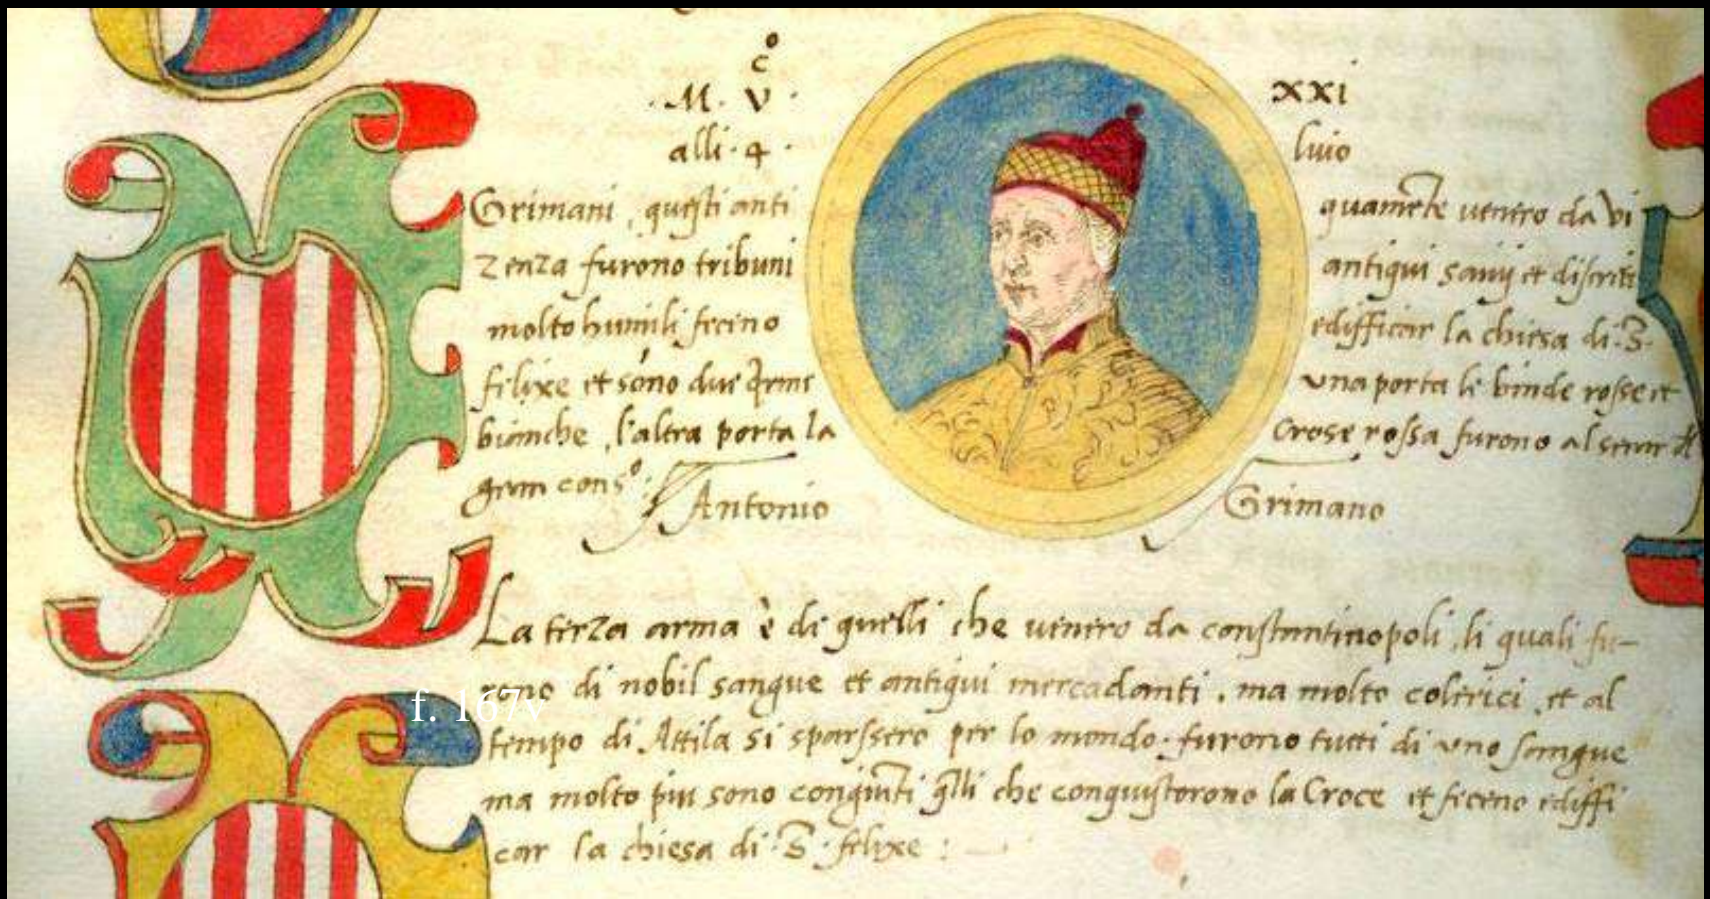 .M. V c o XXI
alli .4. luio
Grimani, questi anti quamete venero da Vi
zenza furono tribuni antiqui savij et discriti
molto humili feceno edifficar la chiesa di .S.
felixe et sono due Arme una porta le binde rosse et
bianche, l'altra porta la Crose rossa furono al serar dl
gran conso:
Antonio Grimano
La terza arma è di quelli che venero da constantinopoli, li quali fu-
reno di nobil sangue et antiqui mercadanti, ma molto colerici, et al
f. 167v
tempo di Attila si sparssero per lo mondo. furono tutti di uno sangue
ma molto piu sono congiuti qlli che conquistorono la Croce et feceno ediffi
car la chiesa di .S. felixe :